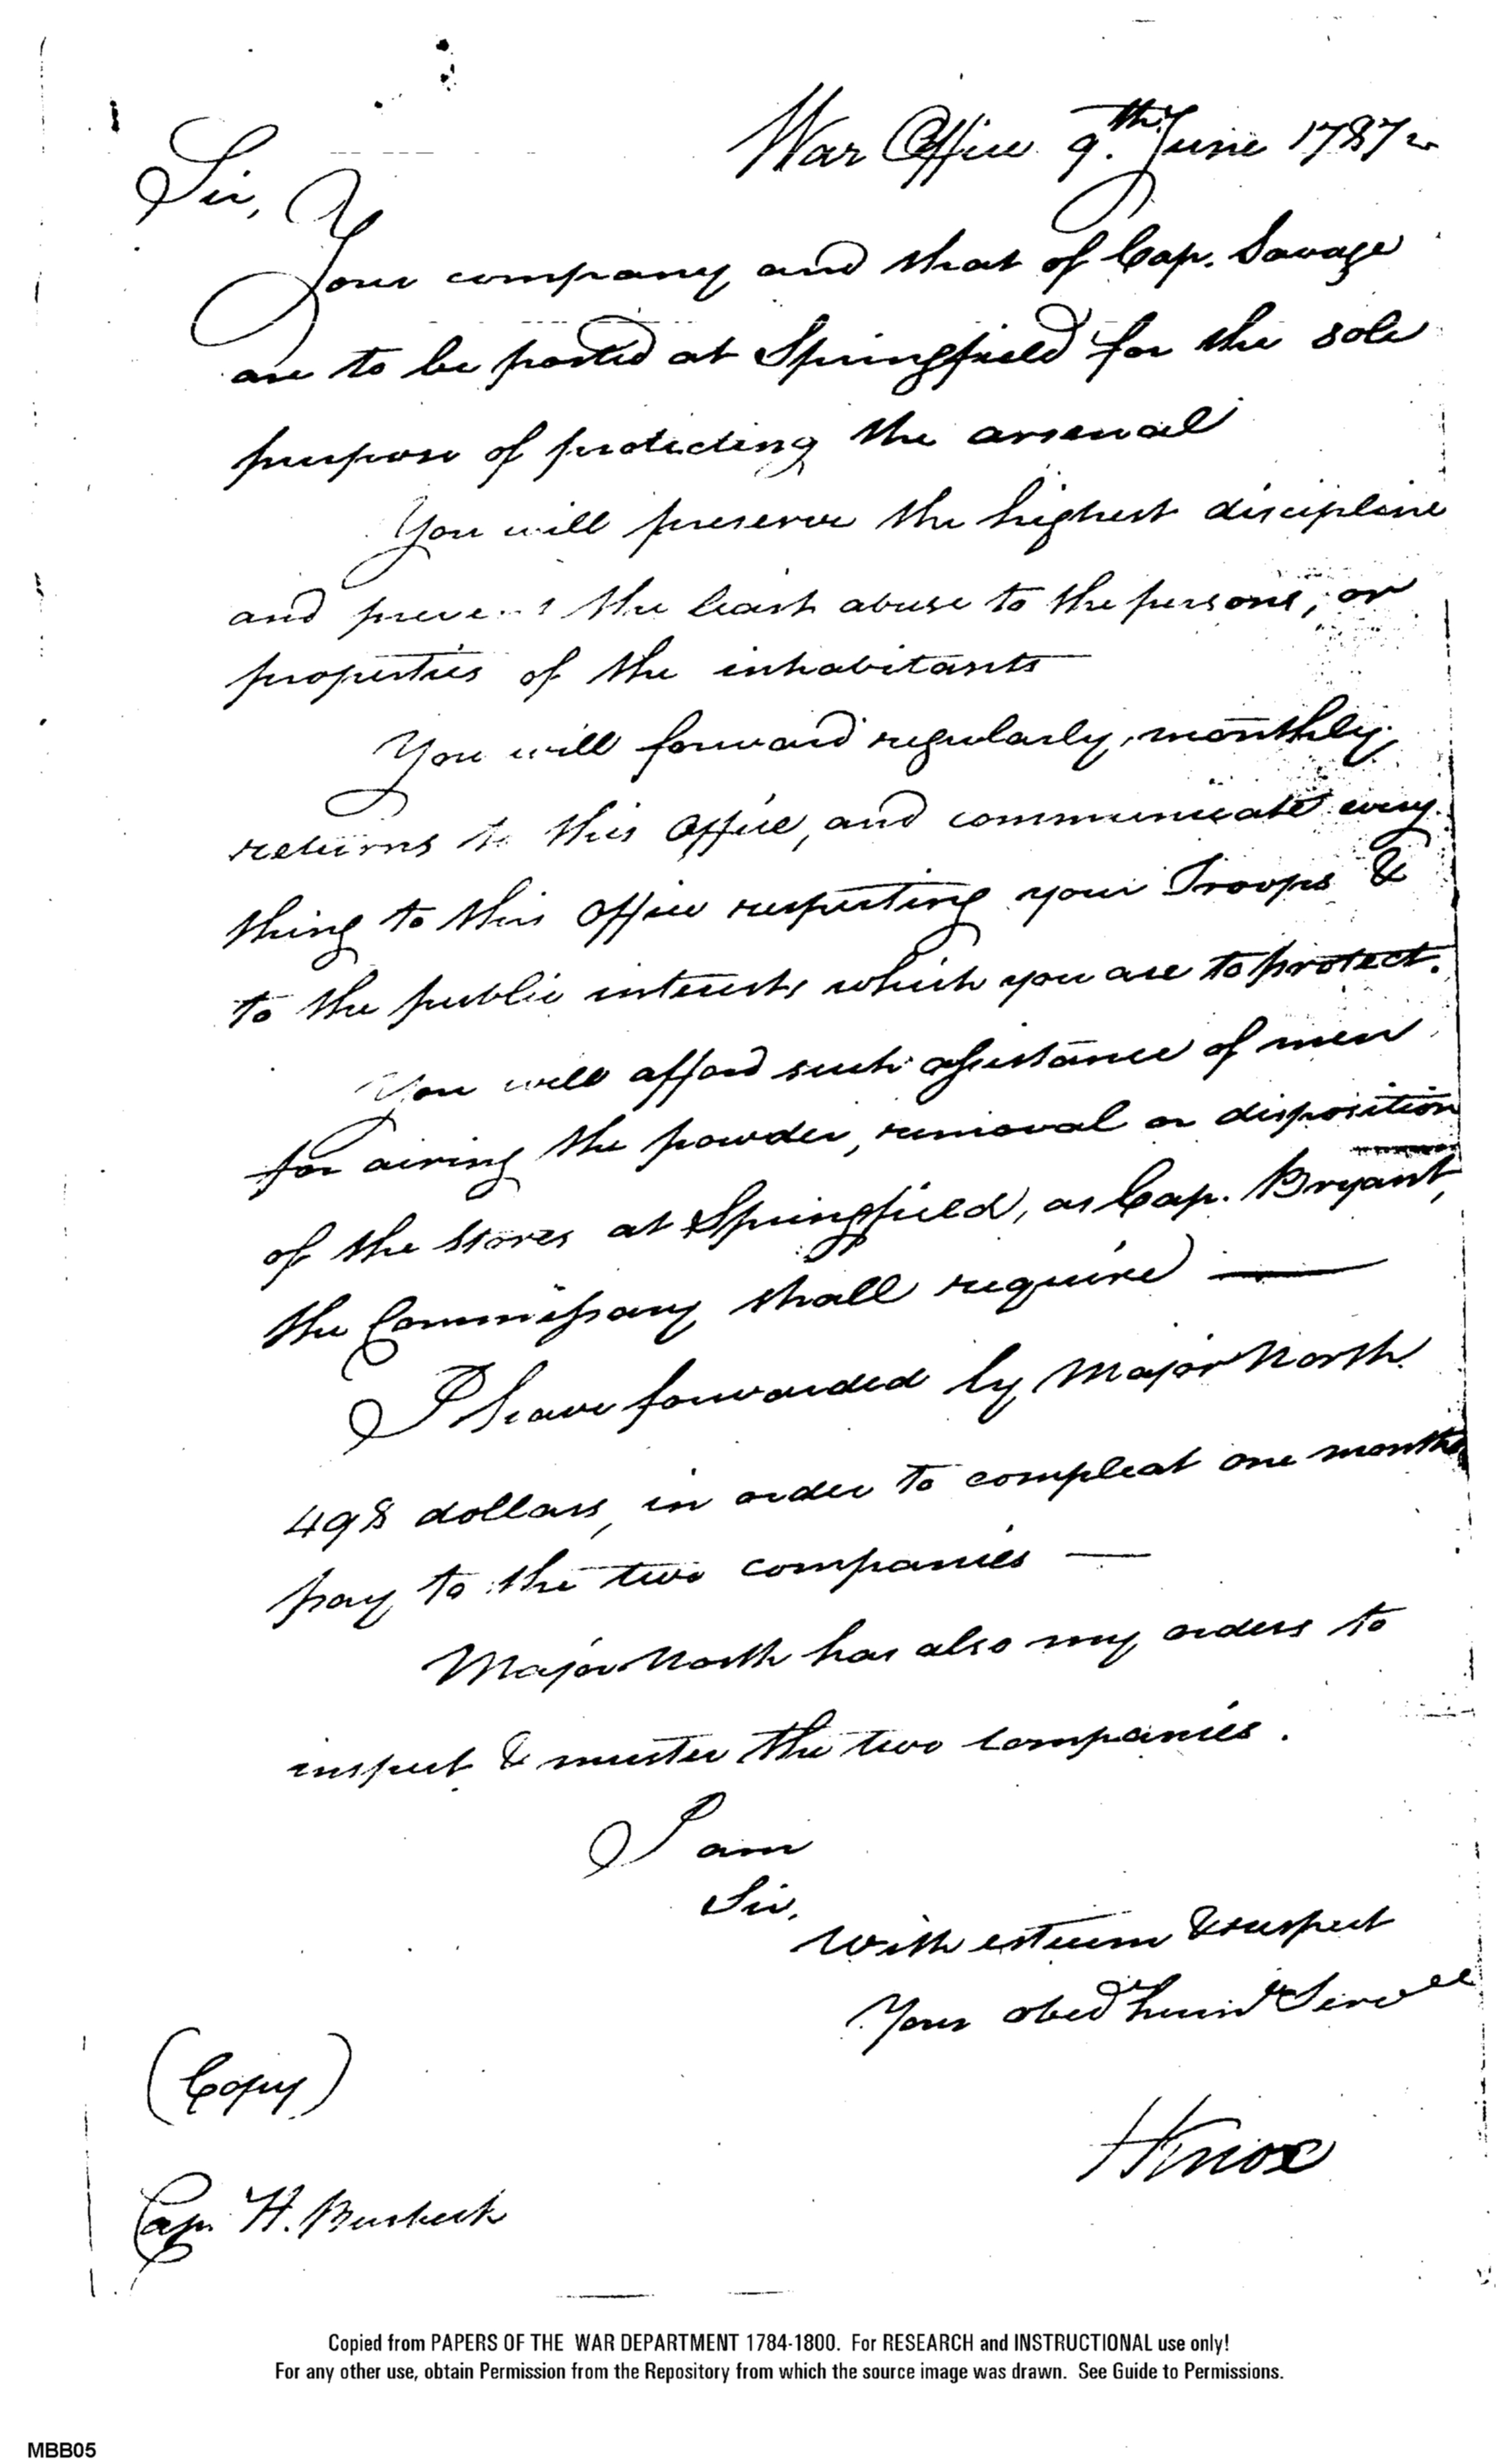 War Office 9.th June 1787
Sir,
Your company and that of Cap. Savage
are to be posted at Springfield for the sole
purpose of protecting the arsenal
You will preserve the highest discipline
and prevent the least abuse to the persons, or
properties of the inhabitants
You will forward regularly, monthly
returns to this Office, and communicate every
thing to this Office respecting your Troops &
to the public interests which you are to protect.
You will afford such assistance of men
for airing the powder, removal or disposition
of the stores at Springfield, as Cap. Bryant,
the Commissary shall require —
I have forwarded by Major North
498 dollars, in order to compleat one months
pay to the two companies —
Major North has also my orders to
inspect & muster the two companies.
I am
Sir,
with esteem & respect
Your obed hum Serv
HKnox
(Copy)
Cap. H. Burbeck
Copied from PAPERS OF THE WAR DEPARTMENT 1784-1800. For RESEARCH and INSTRUCTIONAL use only!
For any other use, obtain Permission from the Repository from which the source image was drawn. See Guide to Permissions.
MBB05